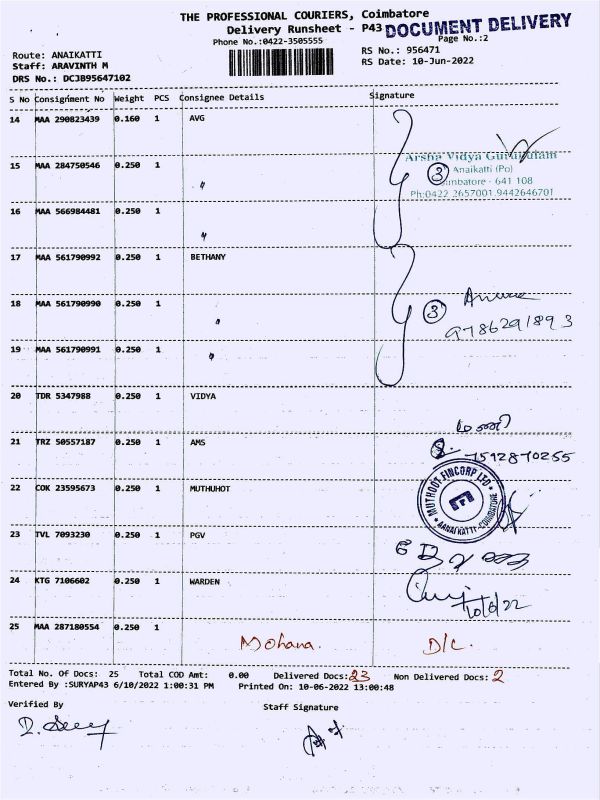 THE PROFESSIONAL COURIERS, Coimbatore
Delivery Runsheet - P43 DOCUMENT DELIVERY
Phone No.:0422-3505555 Page No.:2
Route: ANAIKATTI RS No.: 956471
Staff: ARAVINTH M RS Date: 10-Jun-2022
DRS No.: DCJB95647102
S No Consignment No Weight PCS Consignee Details Signature
14 MAA 290823439 0.160 1 AVG
Arsha Vidya Gurukulam
15 MAA 284750546 0.250 1 〃 3 Anaikatti (Po)
Coimbatore - 641 108
Ph:0422 2657001 9442646701
16 MAA 566984481 0.250 1 〃
17 MAA 561790992 0.250 1 BETHANY
18 MAA 561790990 0.250 1 〃 3
9786291893
19 MAA 561790991 0.250 1 〃
20 TDR 5347988 0.250 1 VIDYA
மணி
21 TRZ 50557187 0.250 1 AMS
7592870255
22 COK 23595673 0.250 1 MUTHUHOT
MUTHOOT FINCORP LTD
AANAIKATTI-COIMBATORE
23 TVL 7093230 0.250 1 PGV
24 KTG 7106602 0.250 1 WARDEN
10/6/22
25 MAA 287180554 0.250 1
Mohana. D/C.
Total No. Of Docs: 25 Total COD Amt: 0.00 Delivered Docs: 23 Non Delivered Docs: 2
Entered By :SURYAP43 6/10/2022 1:00:31 PM Printed On: 10-06-2022 13:00:48
Verified By Staff Signature